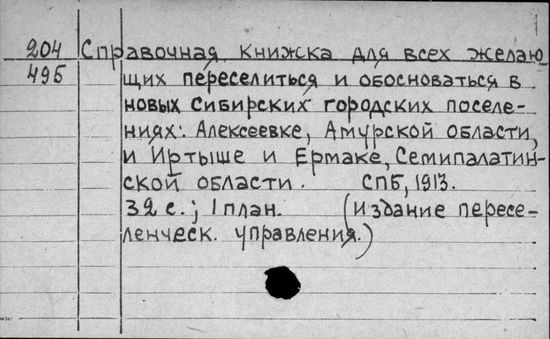 204 Справочная книжка для всех желаю
495 щих переселиться и обосноваться в
новых Сибирских городских поселе-
ниях: Алексеевке, Амурской области,
и Иртыше и Ермаке, Семипалатин-
ской области. СПБ, 1913.
32 с.; 1 план. (Издание пересе-
ленческ. управления.)